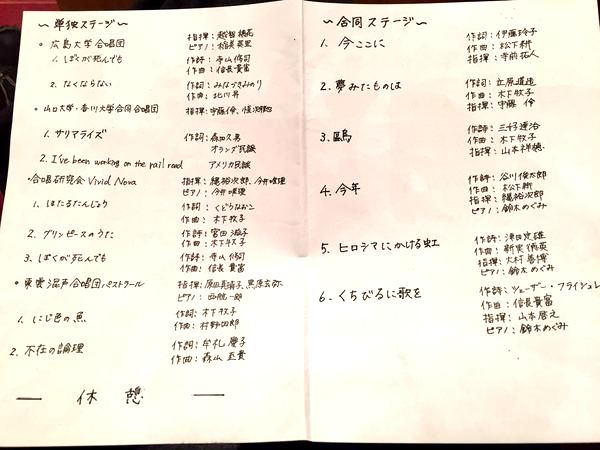 ～単独ステージ～
◦ 広島大学合唱団
指揮：越智
ピアノ：
1. ぼくが死んでも
作詩：寺山修司
作曲：信長貴富
2. なくならない
作詞：みなづきみのり
作曲：北川昇
◦ 山口大学・香川大学合同合唱団
指揮：宇藤伶、
1. サリマライズ
作詞：森田久男
オランダ民謡
2. I've been working on the rail road
アメリカ民謡
◦ 合唱研究会 Vivid Nova
指揮：縄裕次郎、今井
ピアノ：今井
1. ほたるたんじょう
作詞：くどうなおこ
作曲：木下牧子
2. グリンピースのうた
作詩：宮田滋子
作曲：木下牧子
3. ぼくが死んでも
作詩：寺山修司
作曲：信長貴富
◦ 東雲混声合唱団パストラール
指揮：原田真晴子、
ピアノ：
1. にじ色の魚
作詞：木下牧子
作曲：村野四郎
2. 不在の論理
作詞：牟礼慶子
作曲：森山至貴
― 休憩 ―
～合同ステージ～
1. 今ここに
作詞：伊藤玲子
作曲：松下耕
指揮：寺前拓人
2. 夢みたものは
作詞：立原道造
作曲：木下牧子
指揮：宇藤伶
3. 鷗
作詩：三好達治
作曲：木下牧子
指揮：山本祥穂
4. 今年
作詩：谷川俊太郎
作曲：松下耕
指揮：縄裕次郎
ピアノ：鈴木めぐみ
5. ヒロシマにかける虹
作詩：津田定雄
作曲：新実徳英
指揮：大村善博
ピアノ：鈴木めぐみ
6. くちびるに歌を
作詩：ツェーザー・フライシュレ
作曲：信長貴富
指揮：山本啓之
ピアノ：鈴木めぐみ